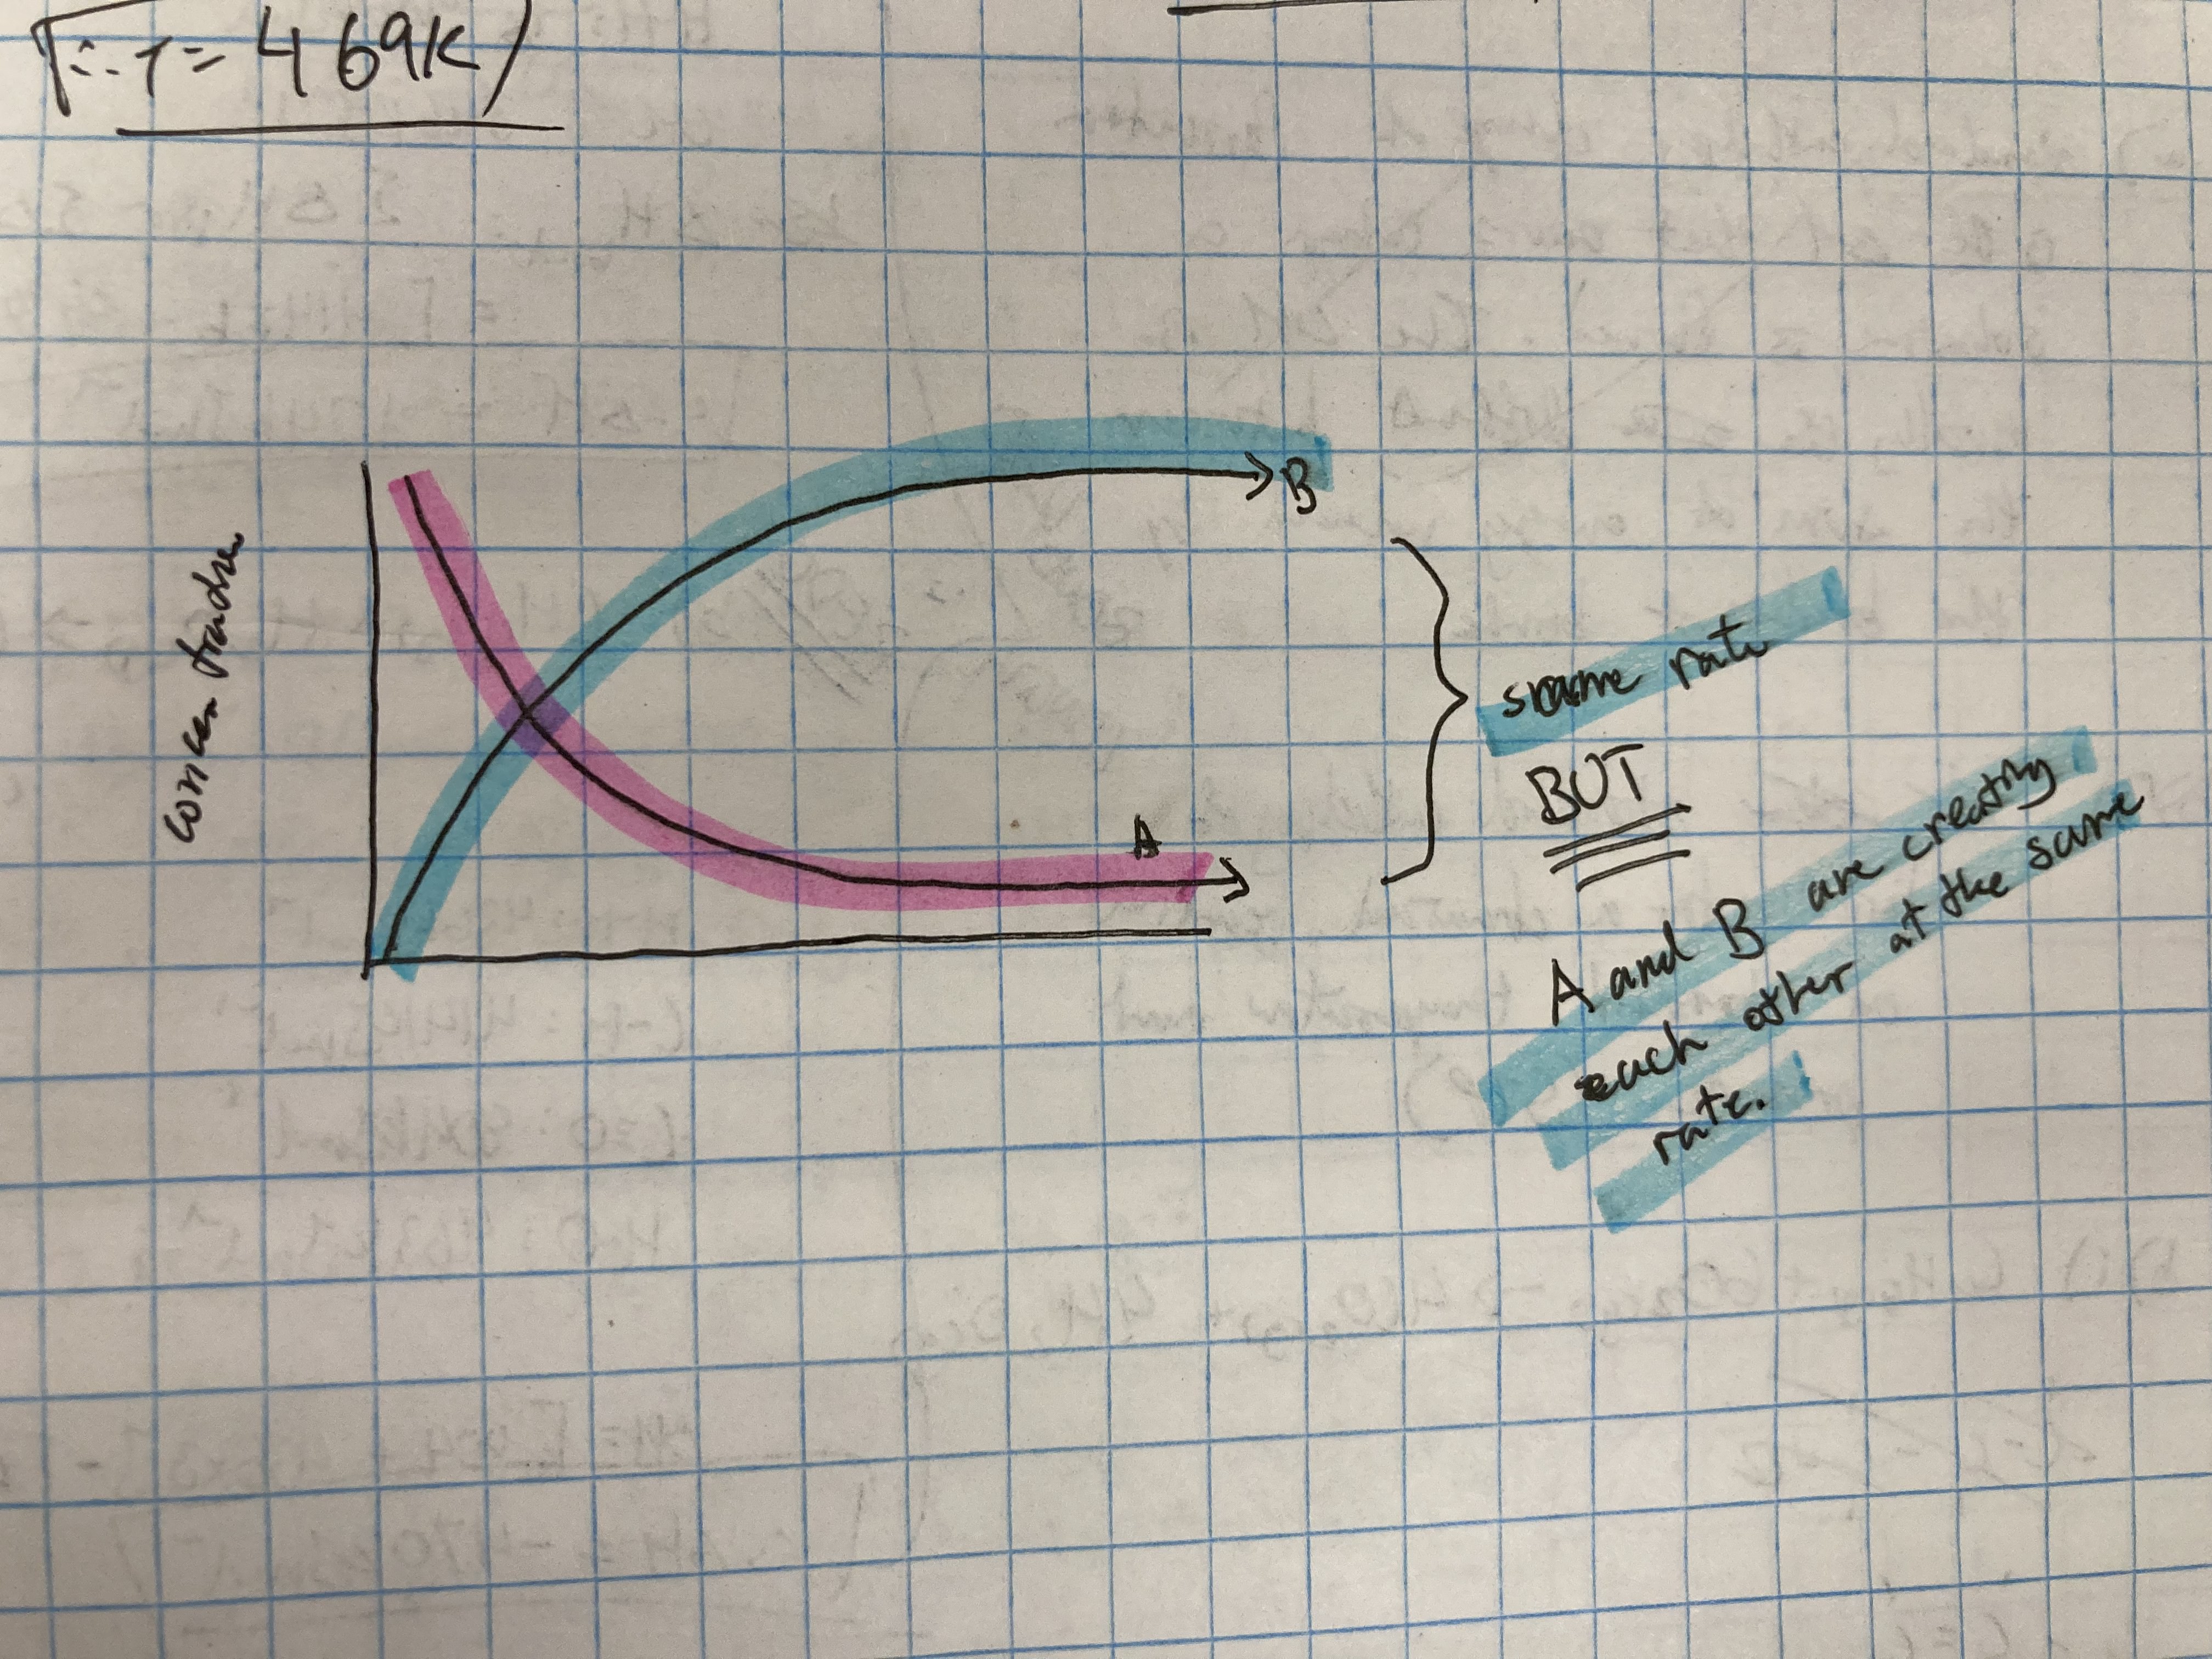 (∴ T = 469K)
concentration
A
B
same rate
BUT
A and B are creating
each other at the same
rate.